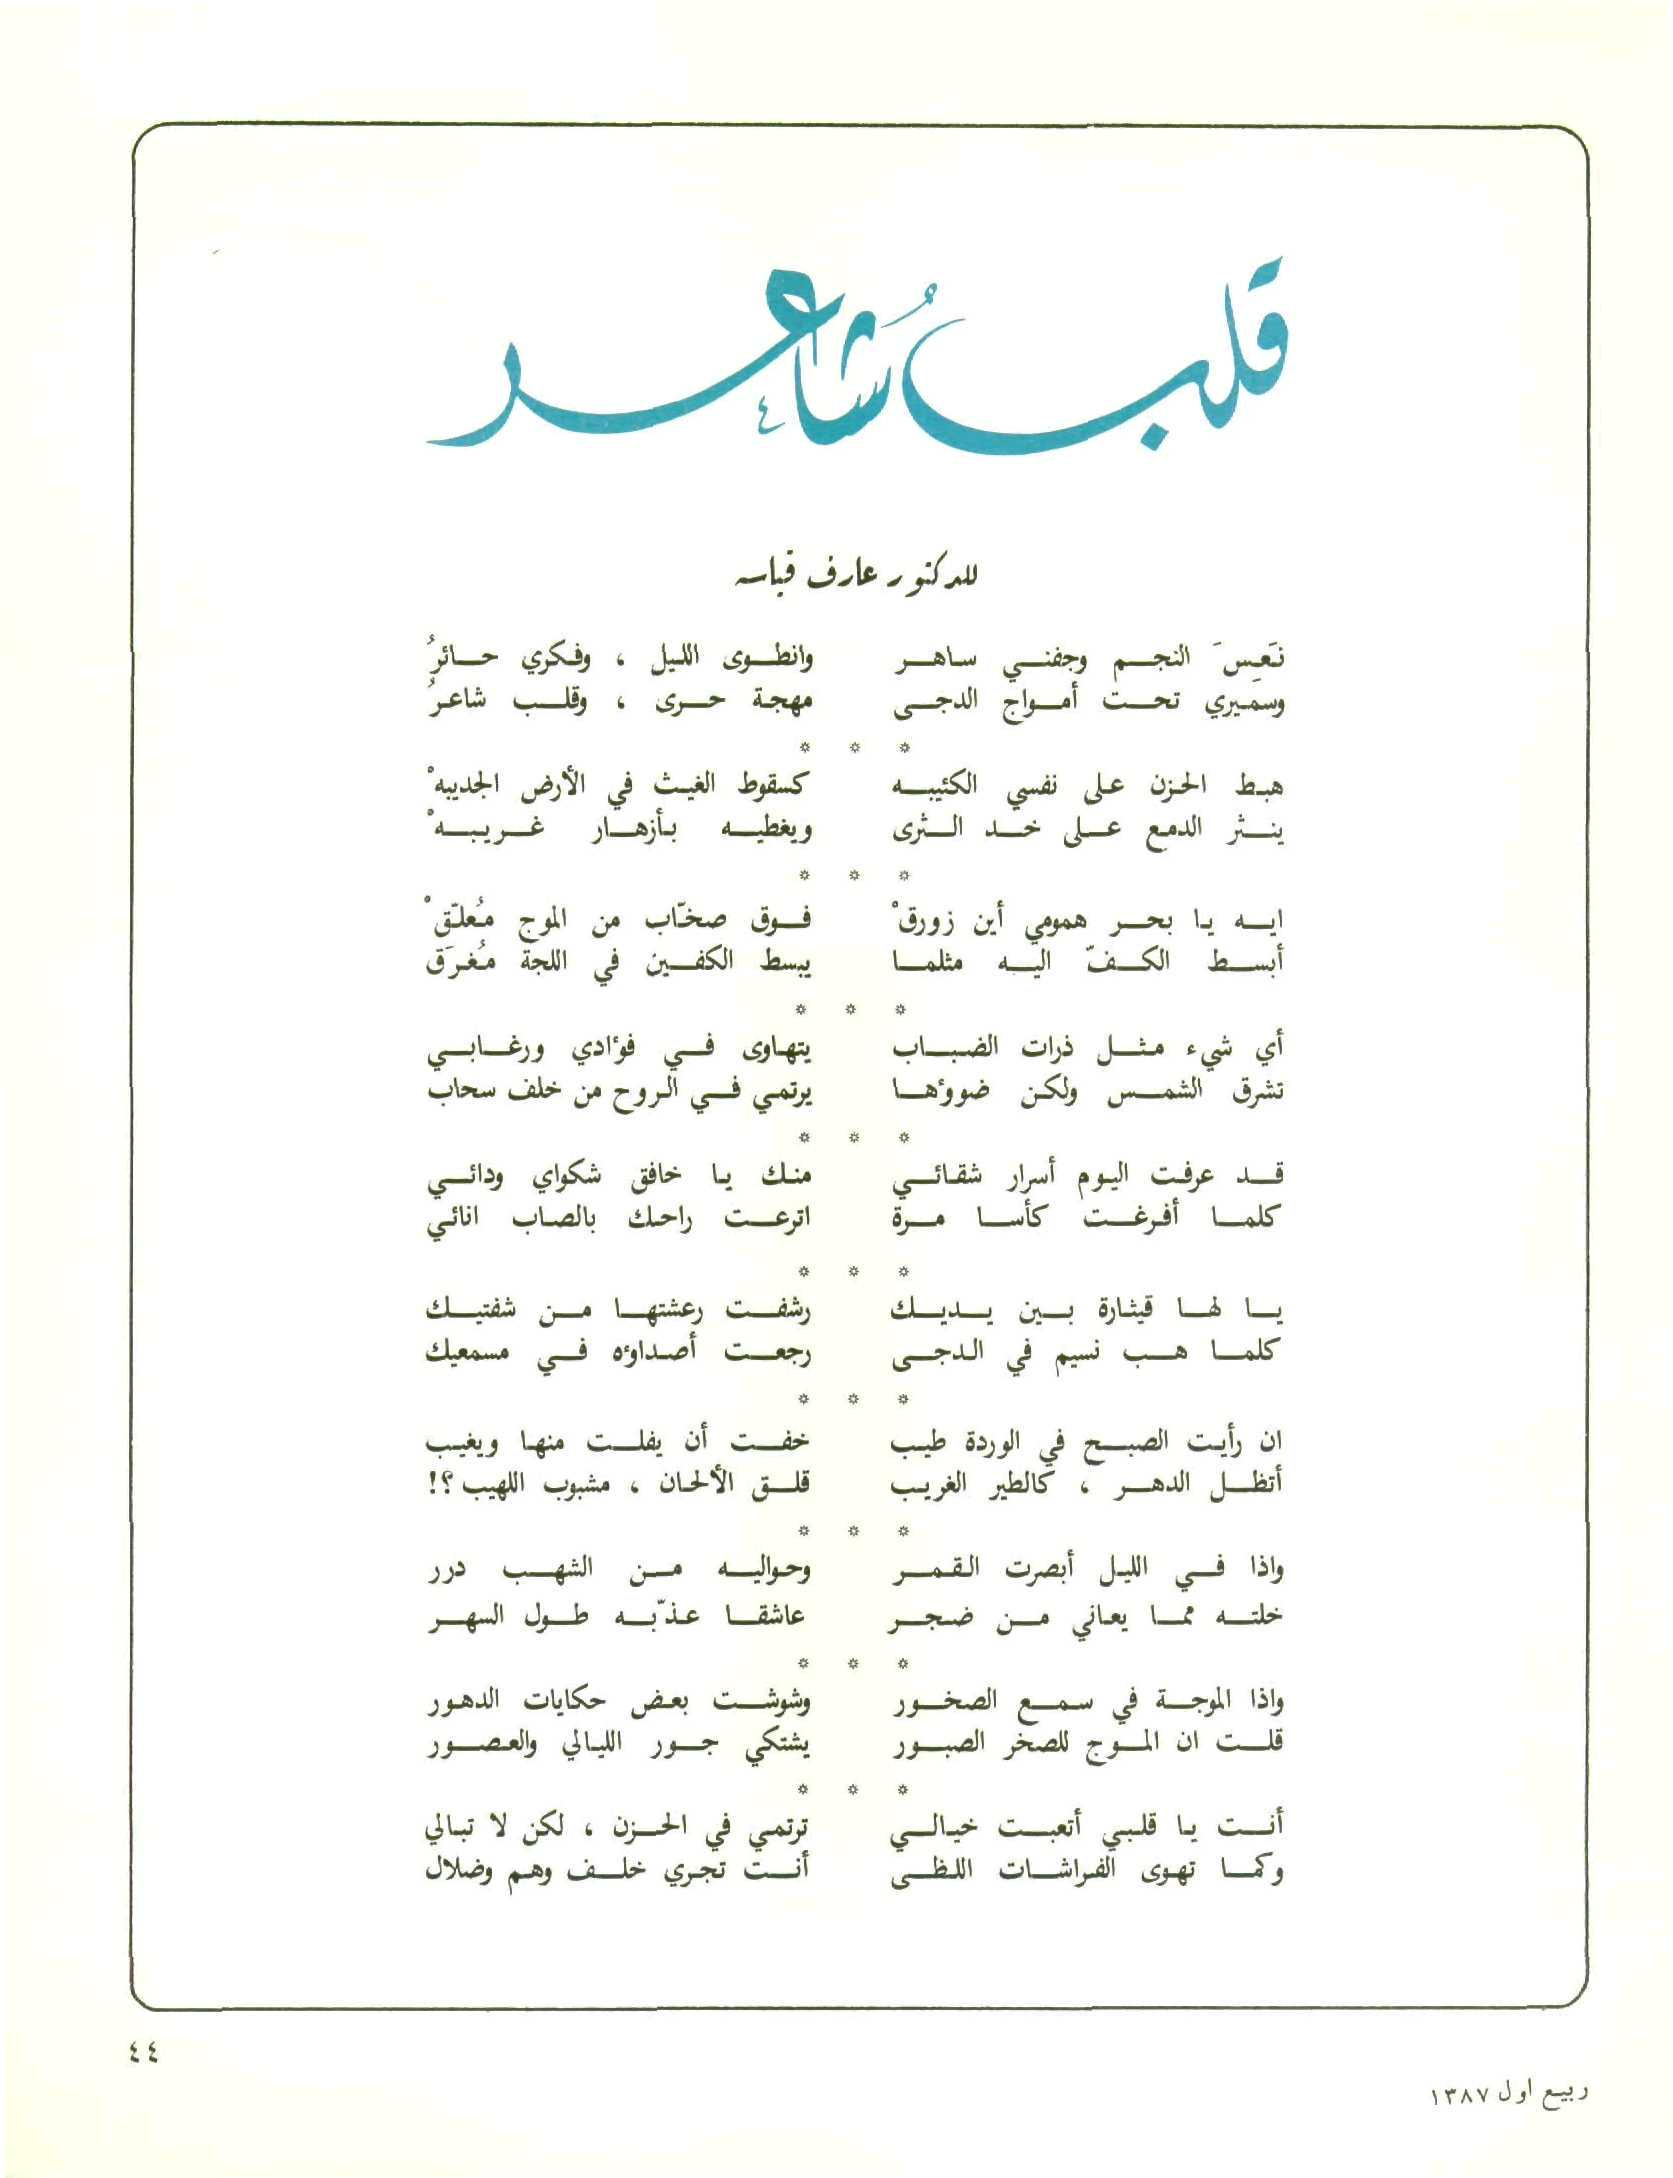 قلب شاعر
للدكتور عارف قياسه
نَعِسَ النجم وجفني ساهر وانطوى الليل ، وفكري حائرُ
وسميري تحت أمواج الدجى مهجة حرى ، وقلب شاعرُ
* * *
هبط الحزن على نفسي الكئيبه كسقوط الغيث في الأرض الجديبهْ
ينثر الدمع على خد الثرى ويغطيه بأزهار غريبهْ
* * *
ايه يا بحر همومي أين زورقْ فوق صخّاب من الموج مُعلّقْ
أبسط الكفّ اليه مثلما يبسط الكفين في اللجة مُغرَق
* * *
أي شيء مثل ذرات الضباب يتهاوى في فؤادي ورغابي
تشرق الشمس ولكن ضوؤها يرتمي في الروح من خلف سحاب
* * *
قد عرفت اليوم أسرار شقائي منك يا خافق شكواي ودائي
كلما أفرغت كأسا مرة اترعت راحك بالصاب انائي
* * *
يا لها قيثارة بين يديك رشفت رعشتها من شفتيك
كلما هب نسيم في الدجى رجعت أصداؤه في مسمعيك
* * *
ان رأيت الصبح في الوردة طيب خفت أن يفلت منها ويغيب
أتظل الدهر ، كالطير الغريب قلق الألحان ، مشبوب اللهيب ؟!
* * *
واذا في الليل أبصرت القمر وحواليه من الشهب درر
خلته مما يعاني من ضجر عاشقا عذّبه طول السهر
* * *
واذا الموجة في سمع الصخور وشوشت بعض حكايات الدهور
قلت ان الموج للصخر الصبور يشتكي جور الليالي والعصور
* * *
أنت يا قلبي أتعبت خيالي ترتمي في الحزن ، لكن لا تبالي
وكما تهوى الفراشات اللظى أنت تجري خلف وهم وضلال
٤٤
ربيع اول ١٣٨٧